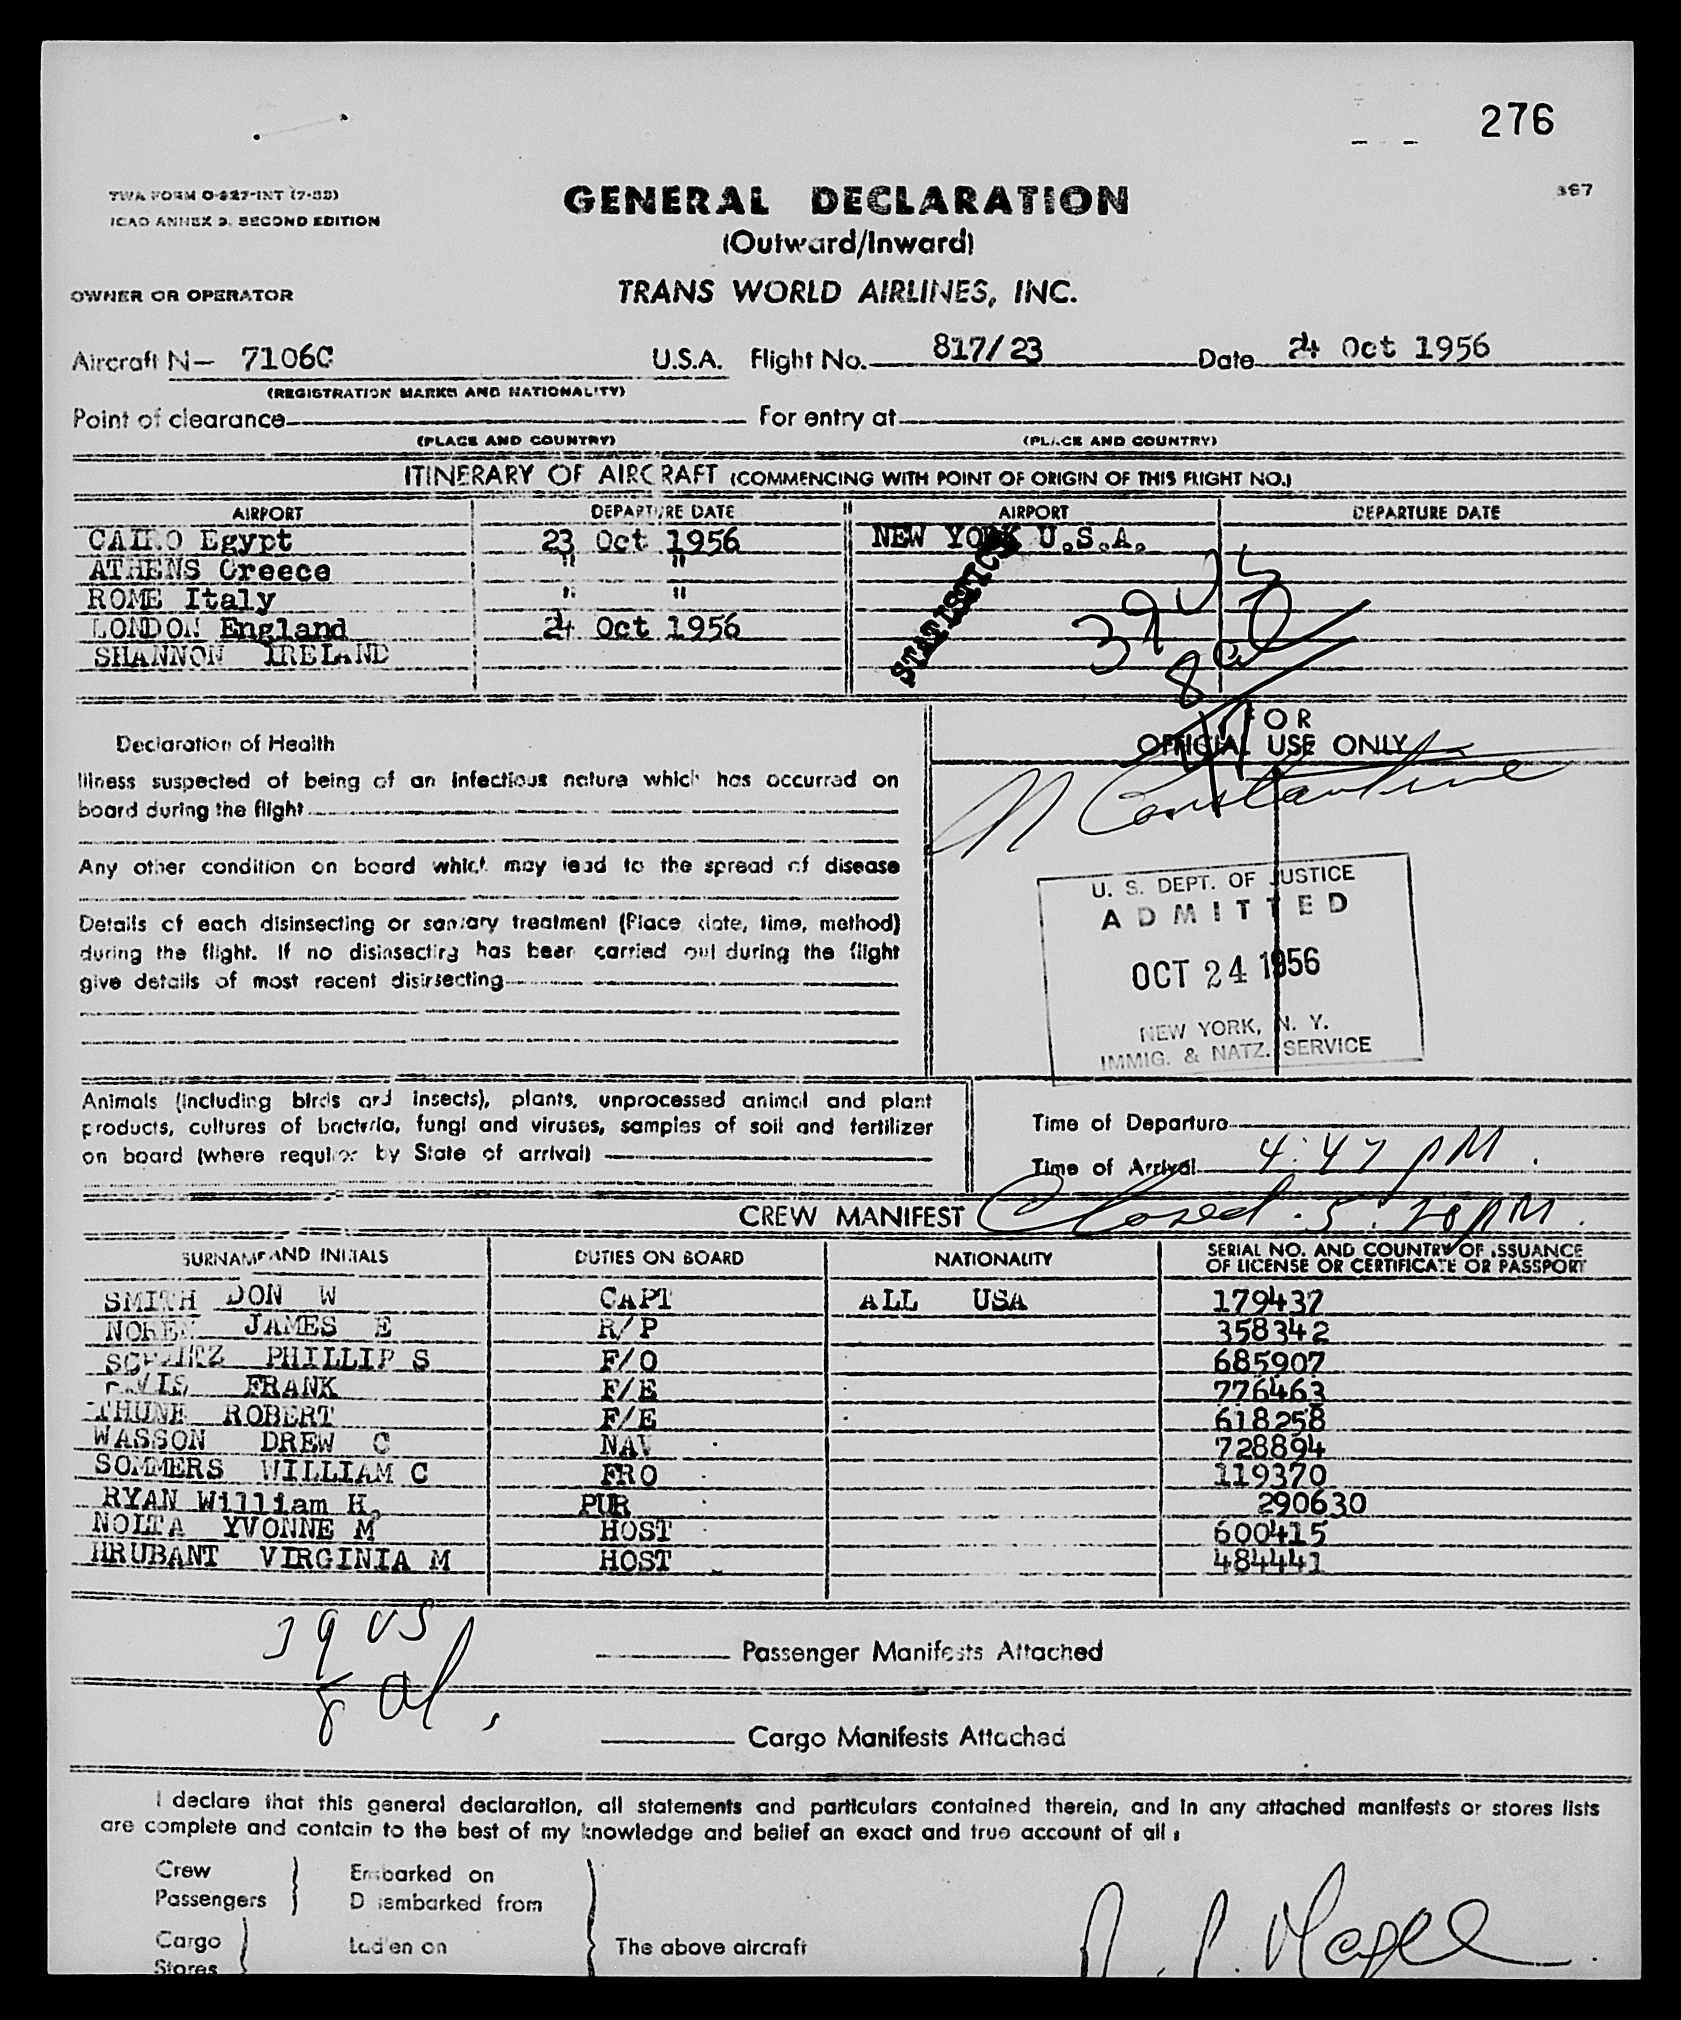 276
TWA FORM O-827-INT (7-55)
ICAO ANNEX 9. SECOND EDITION
367
GENERAL DECLARATION
(Outward/Inward)
OWNER OR OPERATOR
TRANS WORLD AIRLINES, INC.
Aircraft N— 7106C U.S.A. Flight No. 817/23 Date 24 Oct 1956
(REGISTRATION MARKS AND NATIONALITY)
Point of clearance For entry at
(PLACE AND COUNTRY) (PLACE AND COUNTRY)
ITINERARY OF AIRCRAFT (COMMENCING WITH POINT OF ORIGIN OF THIS FLIGHT NO.)
AIRPORT DEPARTURE DATE AIRPORT DEPARTURE DATE
CAIRO Egypt 23 Oct 1956 NEW YORK U.S.A.
ATHENS Greece " "
ROME Italy " "
LONDON England 24 Oct 1956
SHANNON IRELAND
STATISTICS
39 US
8 al
FOR
OFFICIAL USE ONLY
N Constantine
Declaration of Health
Illness suspected of being of an infectious nature which has occurred on
board during the flight
Any other condition on board which may lead to the spread of disease
Details of each disinsecting or sanitary treatment (Place, date, time, method)
during the flight. If no disinsecting has been carried out during the flight
give details of most recent disinsecting
U. S. DEPT. OF JUSTICE
ADMITTED
OCT 24 1956
NEW YORK, N. Y.
IMMIG. & NATZ. SERVICE
Animals (including birds and insects), plants, unprocessed animal and plant
products, cultures of bacteria, fungi and viruses, samples of soil and fertilizer
on board (where required by State of arrival)
Time of Departure
Time of Arrival 4:47 PM.
CREW MANIFEST Closed. 5:20 PM.
SURNAME AND INITIALS DUTIES ON BOARD NATIONALITY SERIAL NO. AND COUNTRY OF ISSUANCE
OF LICENSE OR CERTIFICATE OR PASSPORT
SMITH DON W CAPT ALL USA 179437
NOREN JAMES E R/P 358342
SCHWARTZ PHILLIP S F/O 685907
FRANK F/E 776463
THUNE ROBERT F/E 618258
WASSON DREW C NAV 728894
SOMMERS WILLIAM C FRO 119370
RYAN William H. PUR 290630
NOLTA YVONNE M HOST 600415
HRUBANT VIRGINIA M HOST 484441
39 US
8 al.
Passenger Manifests Attached
Cargo Manifests Attached
I declare that this general declaration, all statements and particulars contained therein, and in any attached manifests or stores lists
are complete and contain to the best of my knowledge and belief an exact and true account of all:
Crew Embarked on
Passengers Disembarked from
Cargo Laden on The above aircraft
Stores
Magee